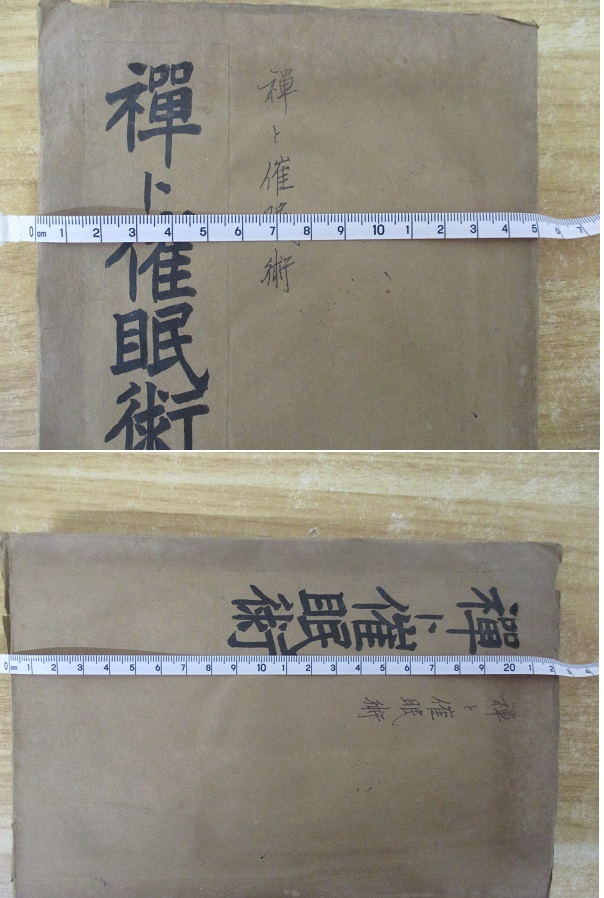 禪ト催眠術
禪と催眠術
0 cm 1 2 3 4 5 6 7 8 9 10 1 2 3 4 5 6 7
禪ト催眠術
0 cm 1 2 3 4 5 6 7 8 9 10 1 2 3 4 5 6 7 8 9 20 1 2
禪と催眠術